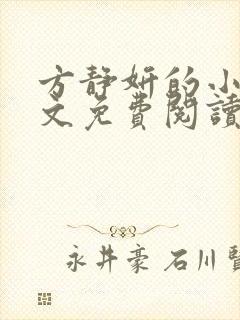 方静妍的小
文免費閱讀
永井豪 石川賢